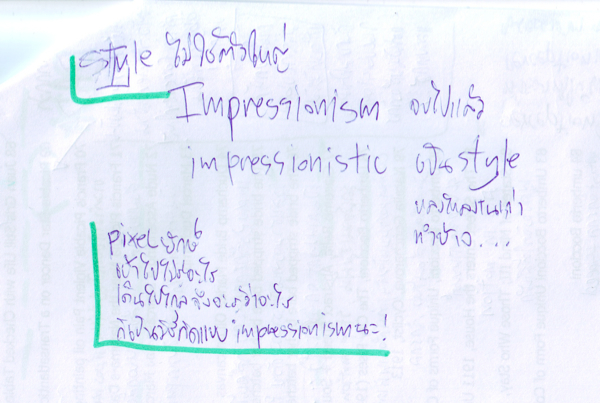 style ไม่ใช้ตัวใหญ่
Impressionism จบไปแล้ว
impressionistic เป็น style
หลงใหลของเก่า
ทำบ้าง...
pixel ยักษ์
เข้าไปไม่รู้อะไร
เดินไปไกลจึงจะรู้ว่าอะไร
ก็เป็นวิธีคิดแบบ impressionism นะ!